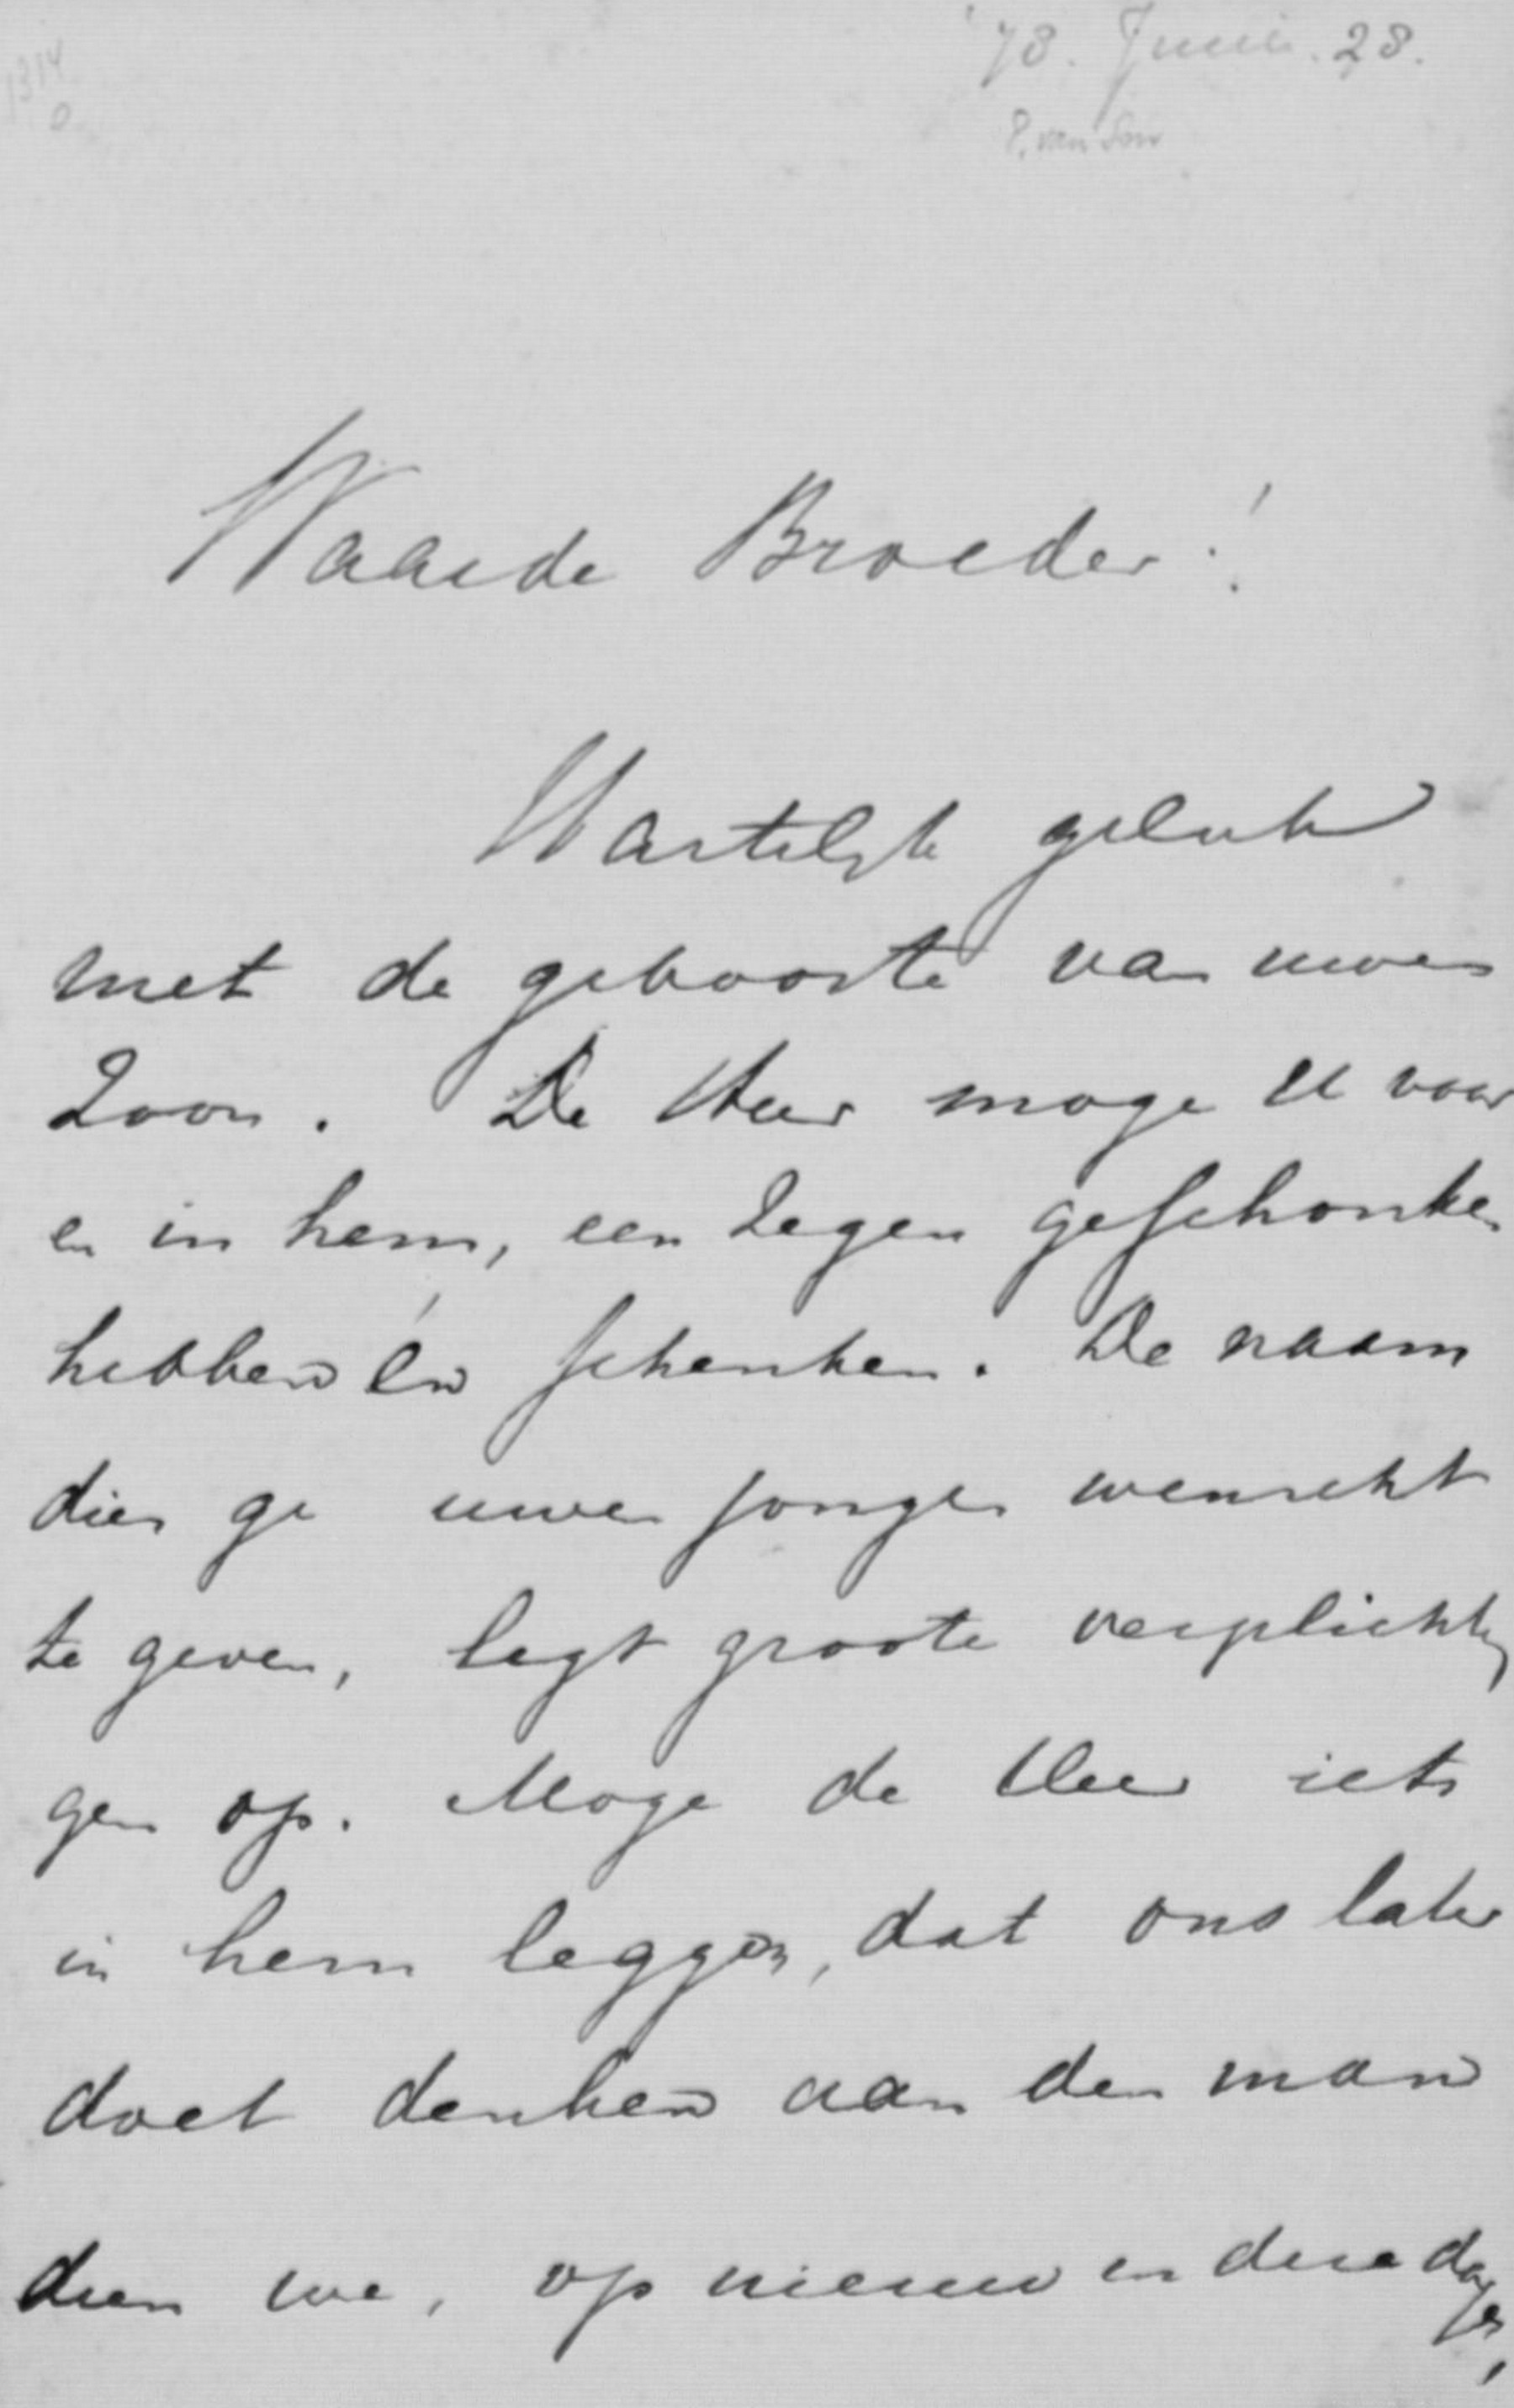 1314
0
'78. Junii. 28.
P. van Son
Waarde Broeder!
Hartelijk geluk
met de geboorte van uwen
Zoon. De Heer moge U voor
en in hem, een Zegen geschonken
hebben én schenken. De naam
dien ge uwen jongen wenscht
te geven, legt groote verplichtin
gen op. Moge de Heer iets
in hem leggen, dat ons later
doet denken aan den man
dien we, op nieuw in deze dagen,